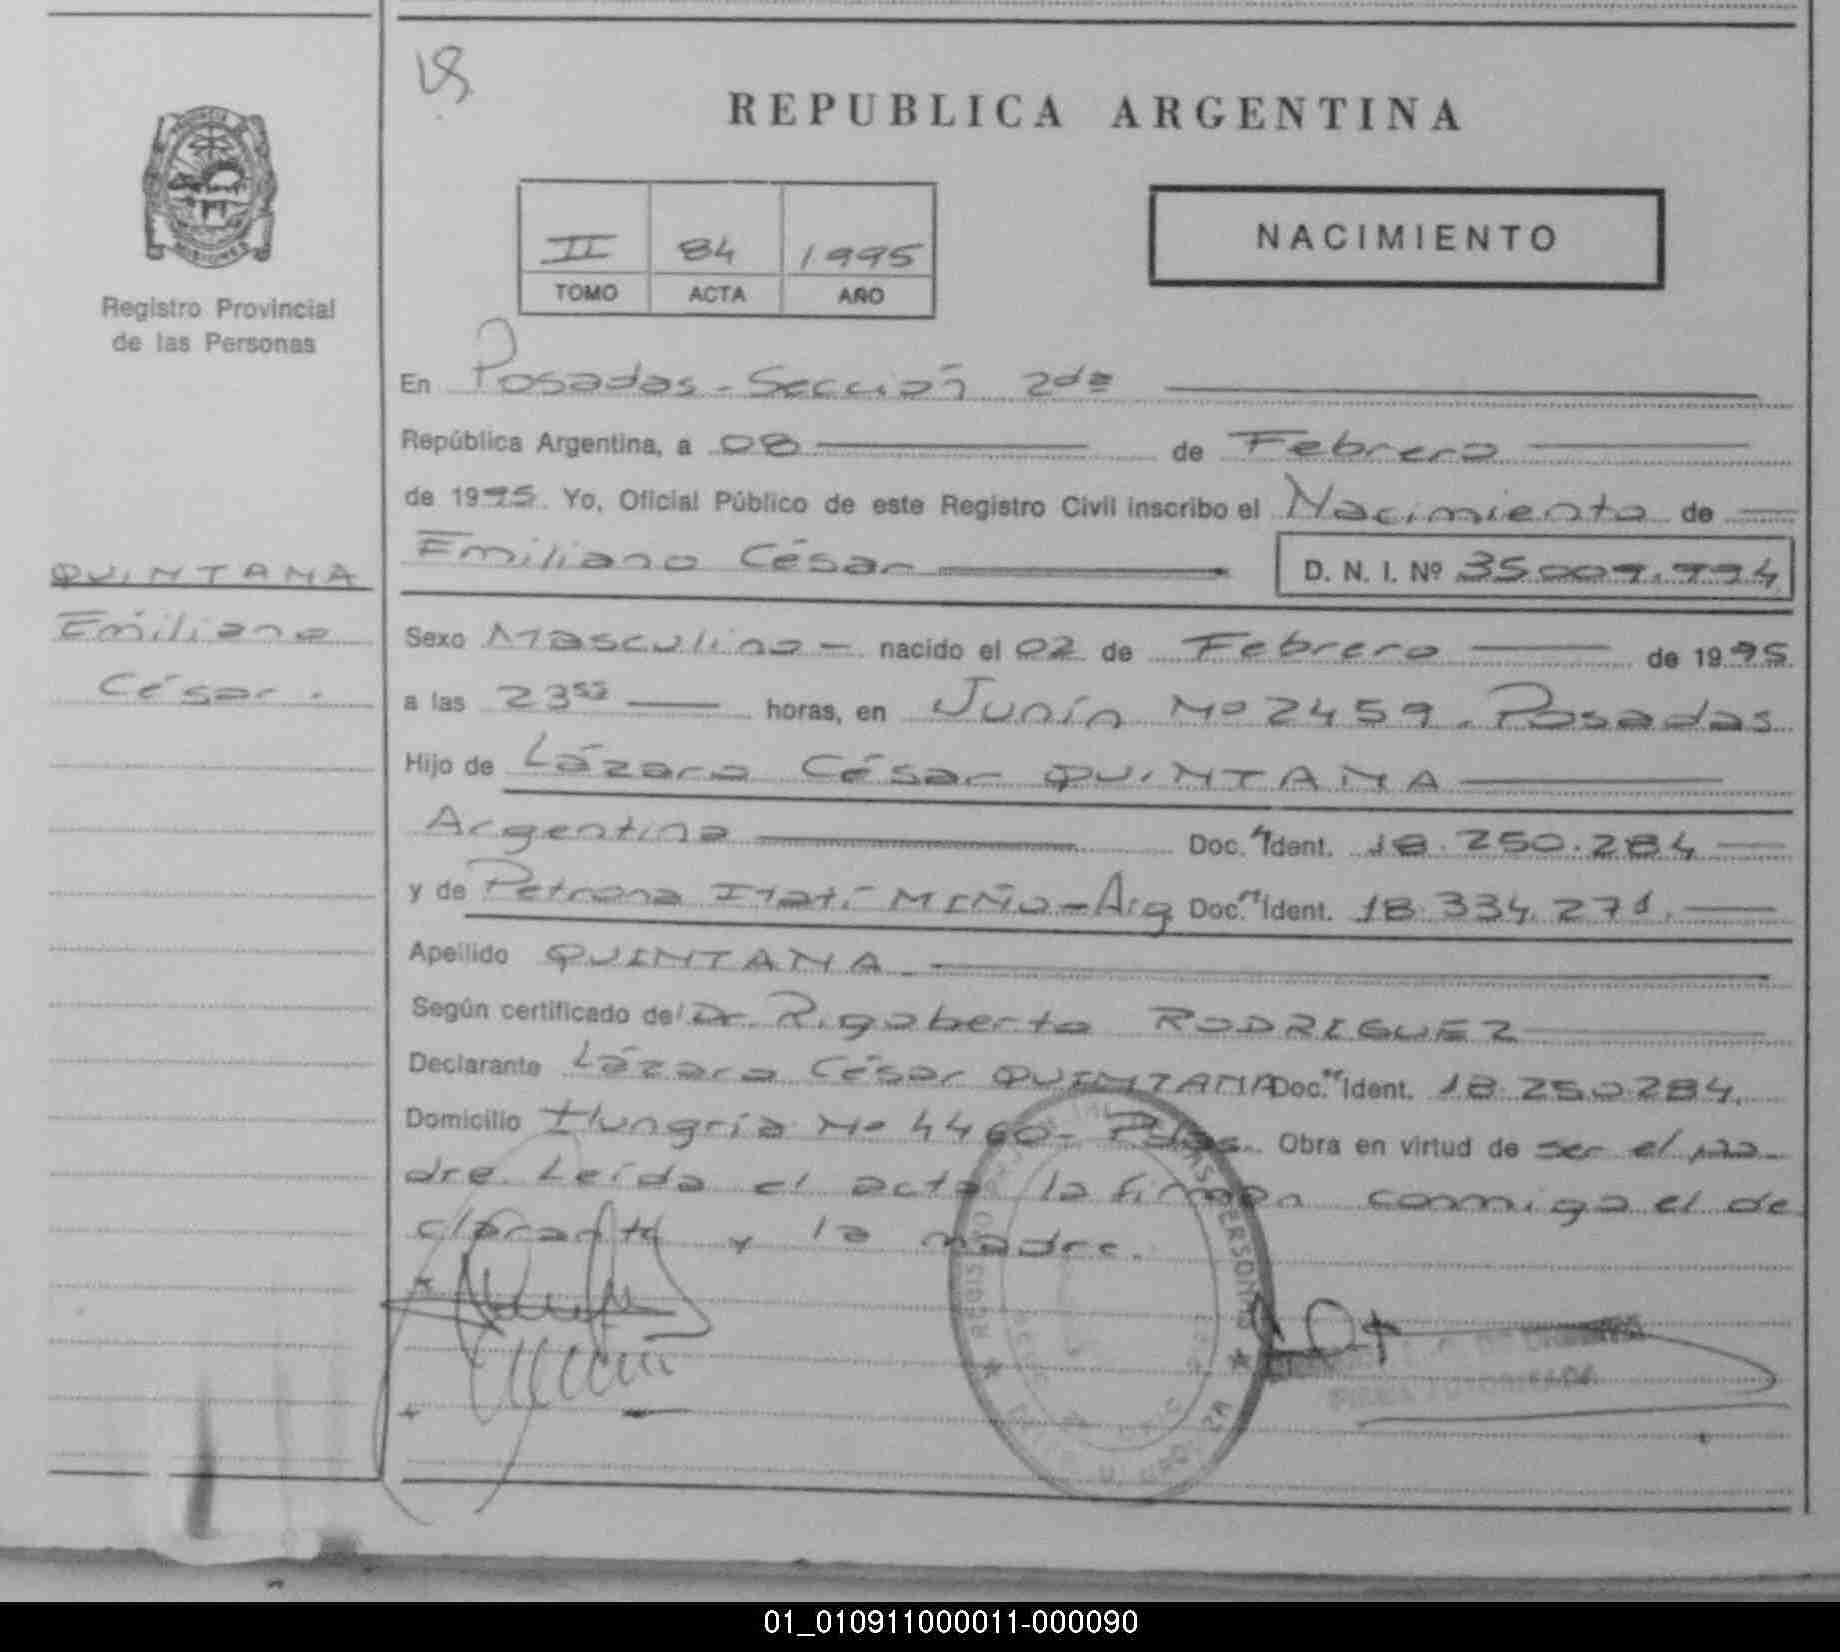 REPUBLICA ARGENTINA
II 84 1995
TOMO ACTA AÑO
NACIMIENTO
Registro Provincial
de las Personas
QUINTANA
Emiliano
César.
En Posadas - Sección 2da
República Argentina, a 08 de Febrero
de 1995. Yo, Oficial Público de este Registro Civil inscribo el Nacimiento de
Emiliano César D. N. I. Nº 35.009.994
Sexo Masculino - nacido el 02 de Febrero de 1995.
a las 23⁵⁵ horas, en Junín Nº 2459. Posadas
Hijo de Lázaro César QUINTANA
Argentina Doc. Ident. 18.250.284
y de Petrona Itatí MIÑO - Arg Doc. Ident. 18.334.271.
Apellido QUINTANA
Según certificado del Dr. Rigoberto RODRIGUEZ
Declarante Lázaro César QUINTANA Doc. Ident. 18.250.284.
Domicilio Hungría Nº 4460 - Pdas. Obra en virtud de ser el pa
dre. Leída el acta la firman conmigo el de
clarante y la madre.
FIRMA AUTORIZADA
01_010911000011-000090